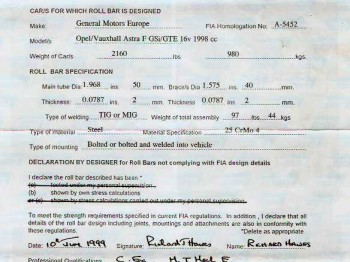 CAR/S FOR WHICH ROLL BAR IS DESIGNED
Make: General Motors Europe FIA Homologation No: A-5452
Model/s Opel/Vauxhall Astra F GSi/GTE 16v 1998 cc
Weight of Car/s 2160 lbs 980 kgs.
ROLL BAR SPECIFICATION
Main tube Dia: 1.968 ins 50 mm. Brace/s Dia 1.575 ins 40 mm.
Thickness: 0.0787 ins 2 mm. Thickness 0.0787 ins 2 mm.
Type of welding TIG or MIG Weight of total assembly 97 lbs 44 kgs.
Type of material Steel Material Specification 25 CrMo 4
Type of mounting Bolted or bolted and welded into vehicle
DECLARATION BY DESIGNER for Roll Bars not complying with FIA design details
I declare the roll bar described has been *
(a) tested under my personal supervision
(b) shown by own stress calculations
or (c) shown by stress calculations carried out under my personal supervision
To meet the strength requirements specified in current FIA regulations. In addition, I declare that all
details of the roll bar design including joints, mountings and attachments are also in conformity with
those regulations. *Delete as appropriate
Date: 10th June 1999 Signature: Richard J Hawes Name: Richard Hawes
Professional Qualifications C. Eng M.I.Mech E